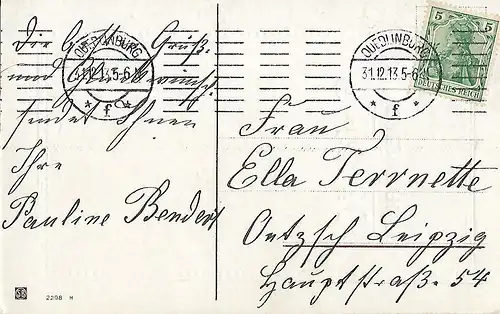 Die besten Grüße
und Glückwünsche
sendet Ihnen
Ihre
Pauline Bendert
QUEDLINBURG
31.12.13 5-6N
* f *
QUEDLINBURG
31.12.13 5-6N
* f *
5 5
DEUTSCHES REICH
Frau
Ella Terrnette
Oetzsch Leipzig
Hauptstraße 54
2298 M